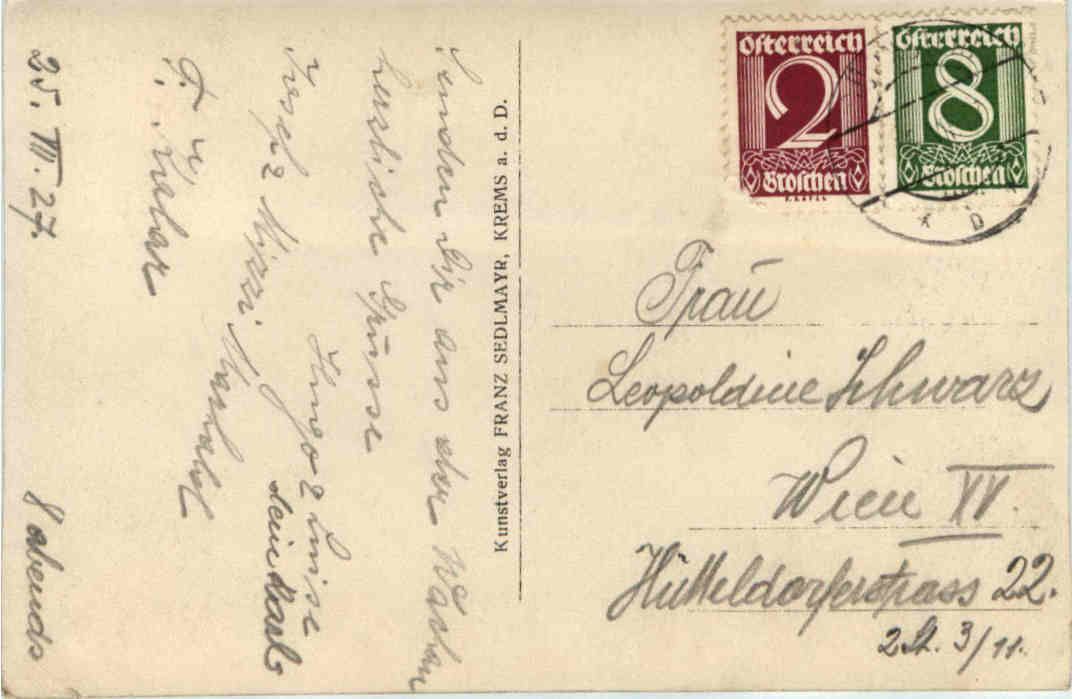 Österreich
2
Groschen
Österreich
8
Groschen
25. VII. 27.
8 abends
Senden Dir aus der Wachau
herzliche Grüsse
Hugo & Luise
dein Karl
Josef & Mizzi
Kunstverlag FRANZ SEDLMAYR, KREMS a. d. D.
Frau
Leopoldine Schwarz
Wien XV.
Hütteldorferstrasse 22.
2 St. 3/11.